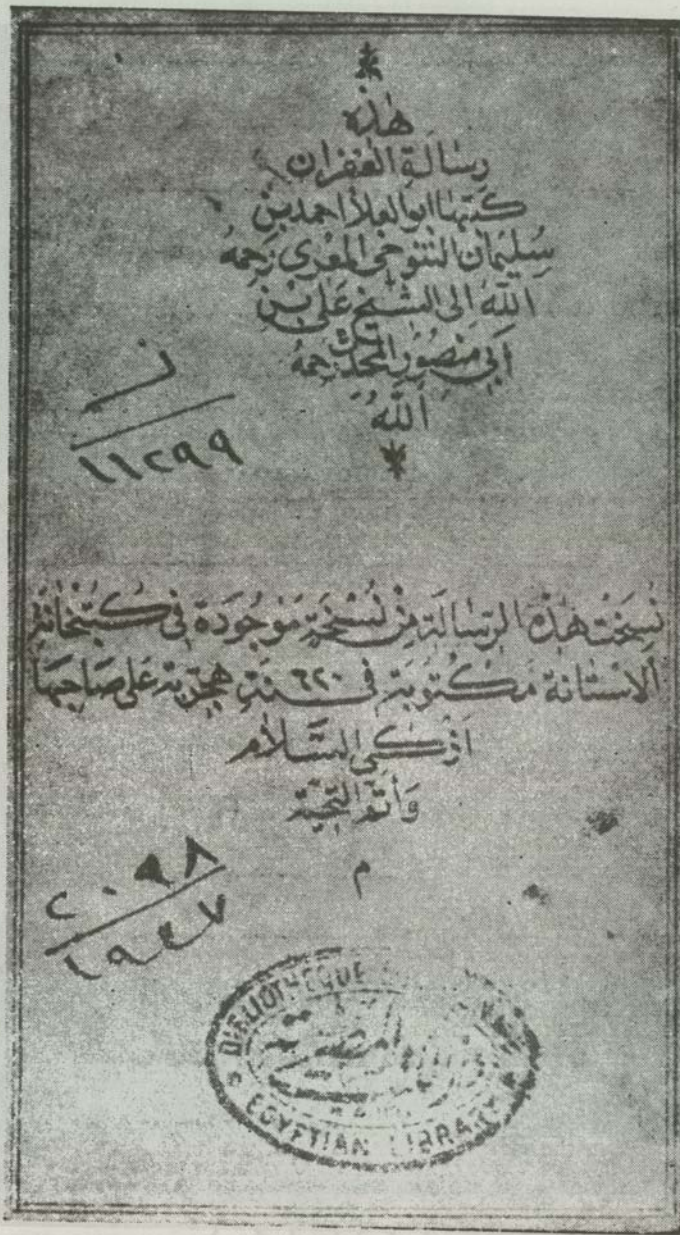 هذه
رسالة الغفران
كتبها ابو العلا احمد بن
سليمان التنوخي المعري رحمه
الله الى الشيخ علي بن
أبي منصور المحدث رحمه
الله
ز
١١٢٩٩
نسخت هذه الرسالة من نسخة موجودة في كتبخانة
الاستانة مكتوبة في سنة ٦٢٠ هجرية على صاحبها
أزكى السلام
وأتم التحية
م
٢٠٩٨
١٩٤٧
BIBLIOTHEQUE
المصرية
EGYPTIAN LIBRARY